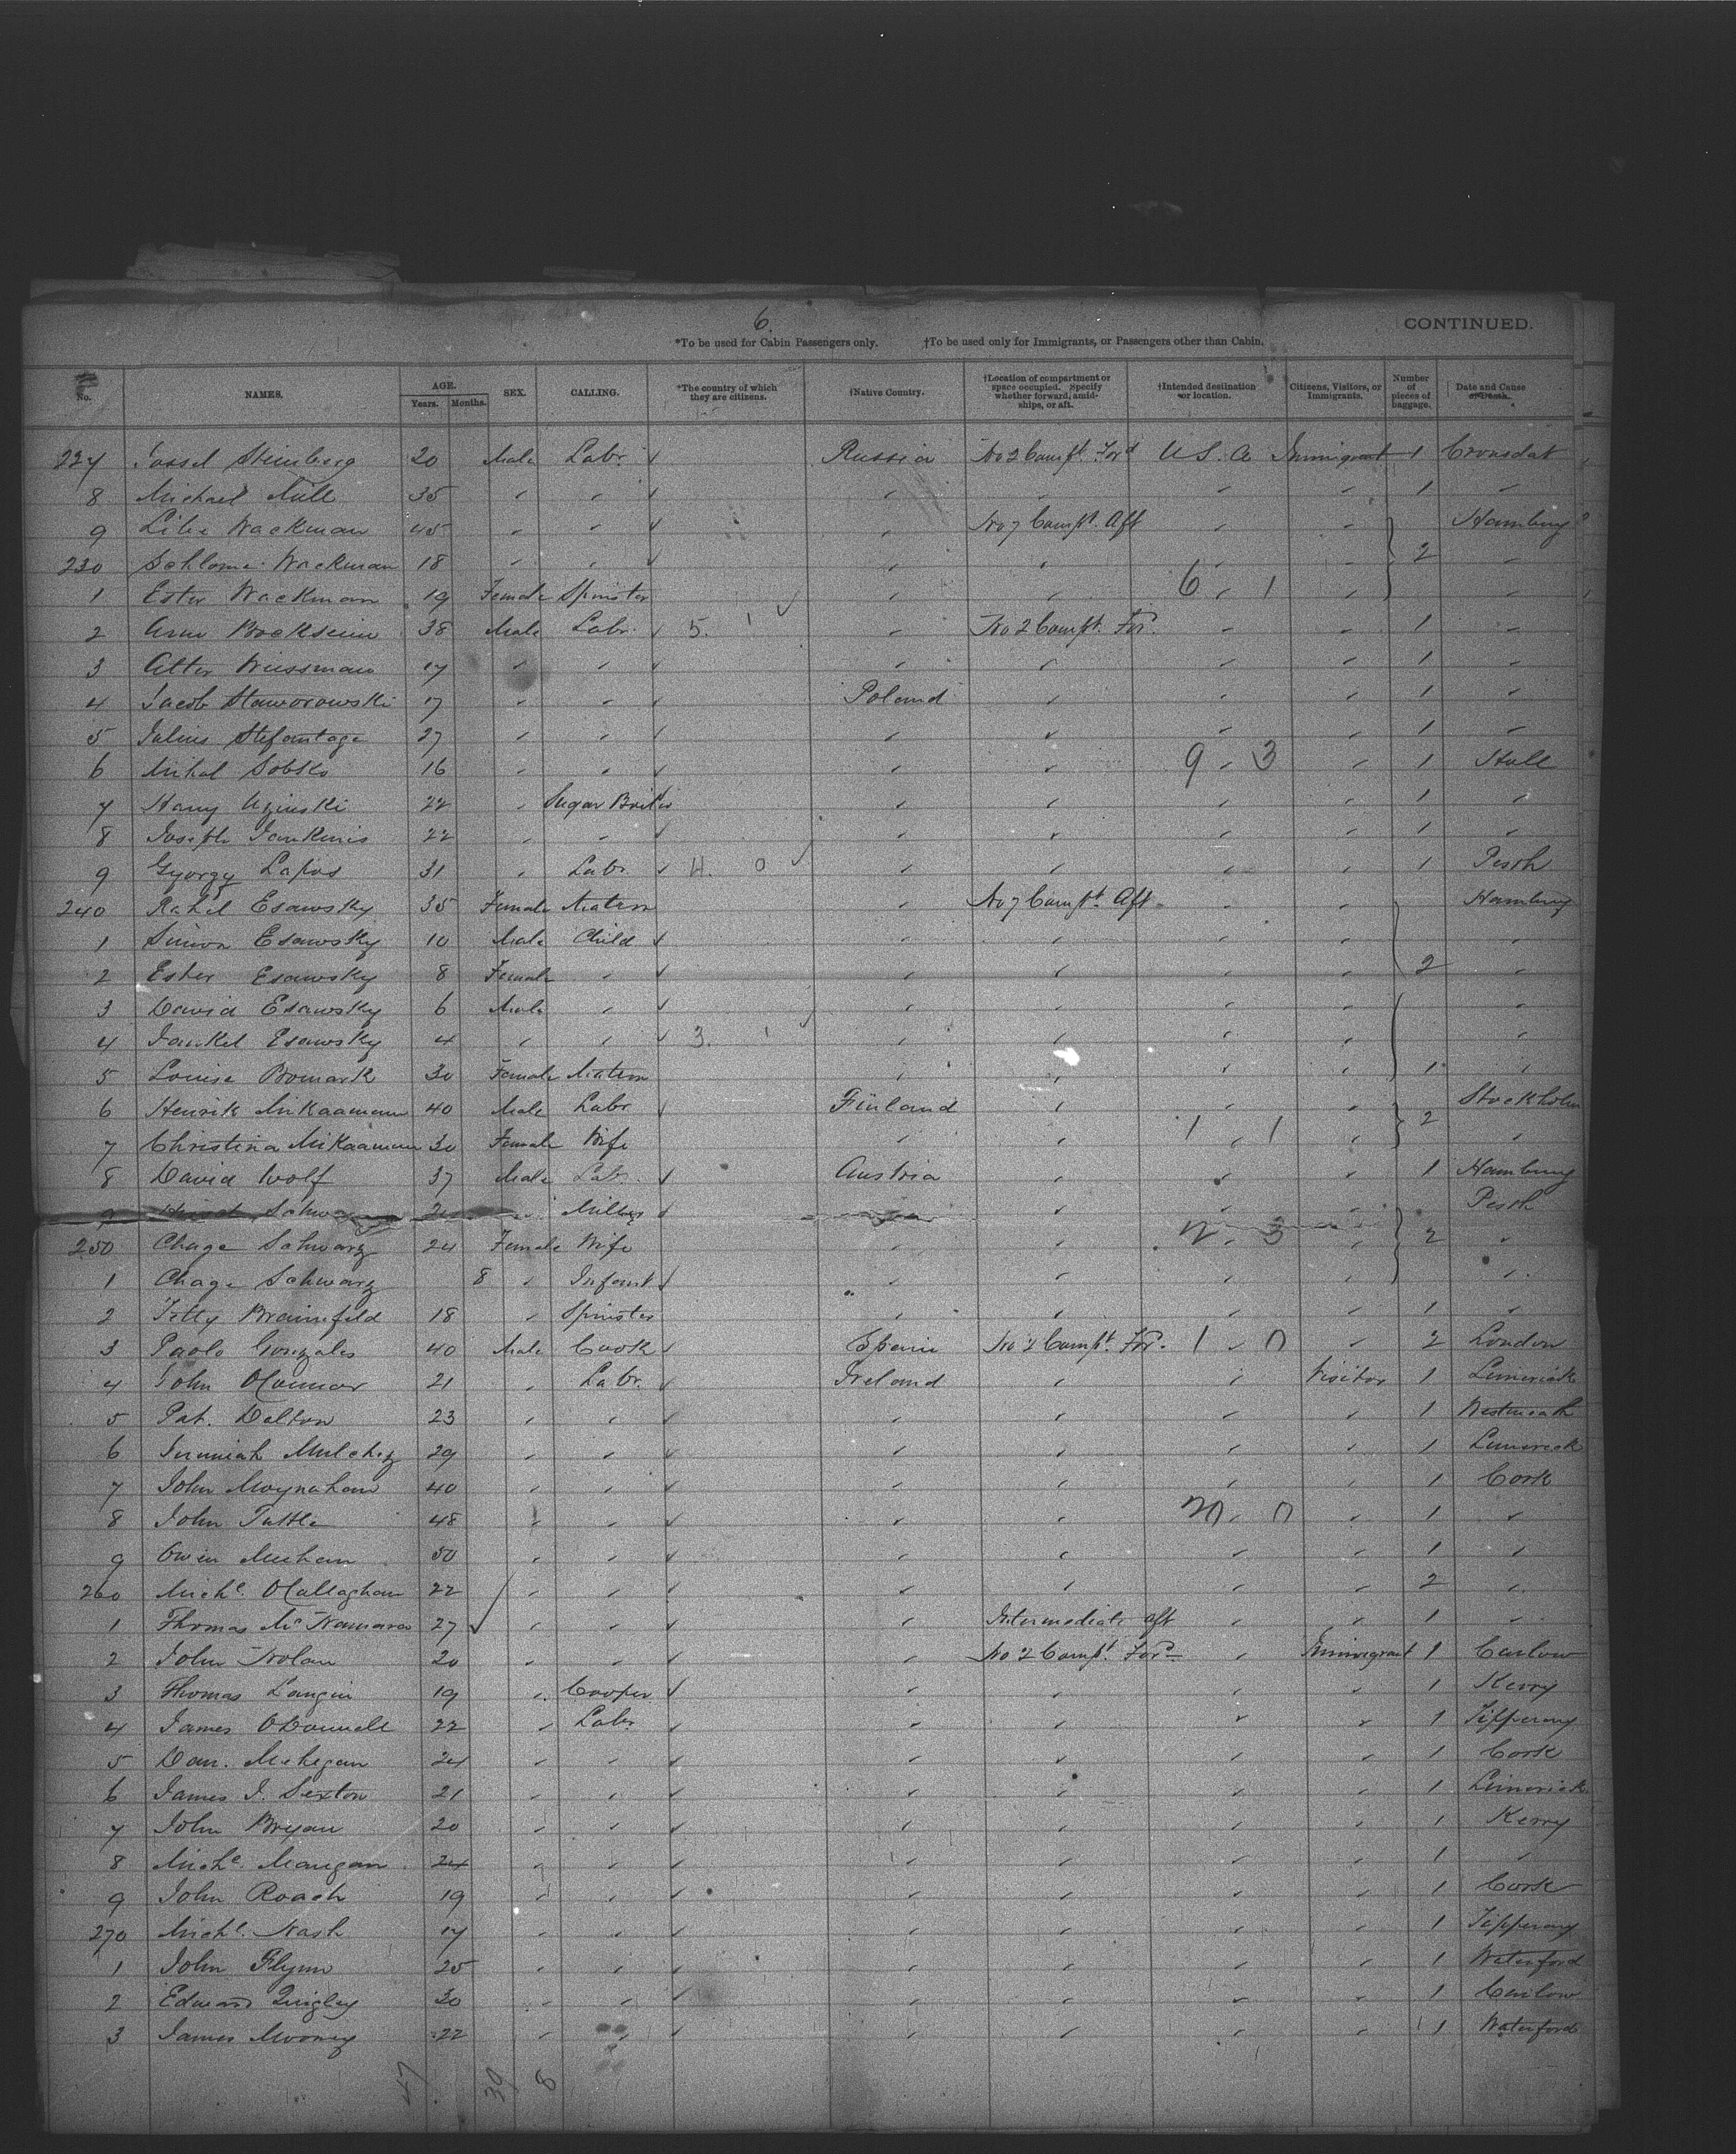 6.
CONTINUED.
*To be used for Cabin Passengers only. †To be used only for Immigrants, or Passengers other than Cabin.
No. NAMES. AGE. Years. Months. SEX. CALLING. *The country of which they are citizens. †Native Country. †Location of compartment or space occupied. Specify whether forward, amidships, or aft. †Intended destination or location. Citizens, Visitors, or Immigrants. Number of pieces of baggage. Date and Cause of Death.
227 Jossel Steinberg 20 Male Labr. ✓ Russia No 2 Compt. Ford U.S.A Immigrant 1 Cronsdat
8 Michael 35 " " ✓ " " " " 1 "
9 Wackman 45 " " ✓ " No 7 Compt. Aft " " Hamburg
230 Wackman 18 " " ✓ " " " " 2 "
1 Ester Wackman 19 Female Spinster " " 6 " 1 " "
2 38 Male Labr. ✓ 5. 1 ✓ " No 2 Compt. For. " " 1 "
3 17 " " ✓ " " " " 1 "
4 Jacob Staworowski 17 " " ✓ Poland " " " 1 "
5 Julius 27 " " ✓ " " " " 1 "
6 Mihal Sobsko 16 " " ✓ " " 9 " 3 " 1 Hull
7 22 " Sugar Boiler " " " " 1 "
8 Joseph Jankunis 22 " " ✓ " " " " 1 "
9 Gyorgy Lapos 31 " Labr. ✓ 4. 0 ✓ " " " " 1 Pesth
240 Rahel Esawsky 35 Female Matron " No 7 Compt. Aft " " Hamburg
1 Simon Esawsky 10 Male Child ✓ " " " " "
2 Ester Esawsky 8 Female " ✓ " " " " 2 "
3 David Esawsky 6 Male " ✓ " " " " "
4 Jankel Esawsky 4 " " ✓ 3. 1 " " " " "
5 Louise Bomark 30 Female Matron " " " " 1 "
6 Henrik Mikaamann 40 Male Labr ✓ Finland " " " 2 Stockholm
7 Christina Mikaamann 30 Female Wife " " 1 " 1 " "
8 David Wolf 37 Male Labr. ✓ Austria " " " 1 Hamburg
9 " ✓ " " " Pesth
250 Chage Schwarz 24 Female Wife " " 2 " 3 " 2 "
1 Chage Schwarz 8 " Infant ✓ " " " " "
2 18 " Spinster " " " " 1 "
3 Paolo Gonzales 40 Male Cook ✓ Spain No 2 Compt. For. 1 " 0 " 2 London
4 John OConnor 21 " Labr. ✓ Ireland " " Visitor 1 Limerick
5 Pat. Dalton 23 " " ✓ " " " " 1 Westmeath
6 Jeremiah 29 " " ✓ " " " " 1 Limerick
7 John Moynahan 40 " " ✓ " " " " 1 Cork
8 John Tuttle 48 " " ✓ " " 20 " 0 " 1 "
9 Owen Meehan 50 " " ✓ " " " " 1 "
260 Michl. OCallaghan 22 " " ✓ " " " " 2 "
1 Thomas McNamara 27 ✓ " " ✓ " Intermediate aft " " 1 "
2 John Nolan 20 " " ✓ " No 2 Compt. For. " Immigrant 1 Carlow
3 Thomas Langin 19 " Cooper ✓ " " " " 1 Kerry
4 James ODonnell 22 " Labr ✓ " " " " 1 Tipperary
5 Dan. Mehegan 24 " " ✓ " " " " 1 Cork
6 James J. Sexton 21 " " ✓ " " " " 1 Limerick
7 John Bryan 20 " " ✓ " " " " 1 Kerry
8 Michl. Mangan 24 " " ✓ " " " " 1 "
9 John Roach 19 " " ✓ " " " " 1 Cork
270 Michl. Nash 17 " " ✓ " " " " 1 Tipperary
1 John Flynn 25 " " ✓ " " " " 1 Waterford
2 Edward Quigley 30 " " ✓ " " " " 1 Carlow
3 James Mooney 22 " " ✓ " " " " 1 Waterford
47 39 8